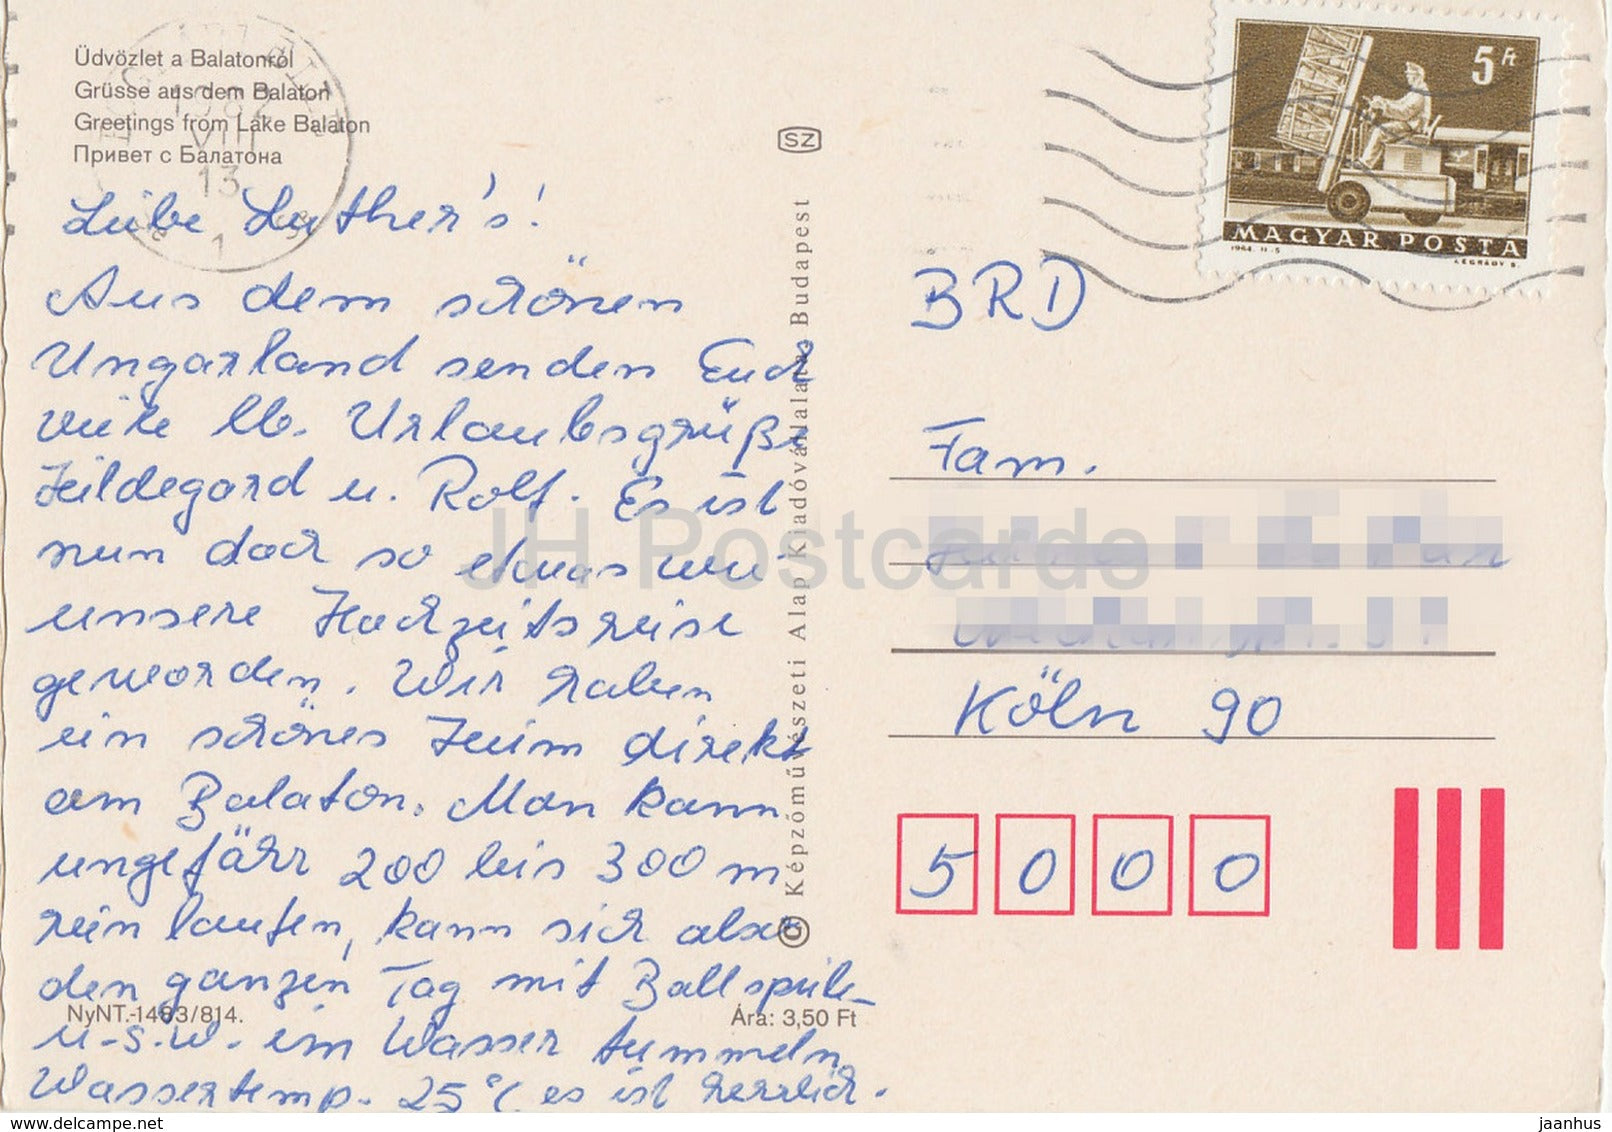 Üdvözlet a Balatonról
Grüsse aus dem Balaton
Greetings from Lake Balaton
Привет с Балатона
1982
VIII
13
1
SZ
5 Ft
MAGYAR POSTA
1964. II-5
LÉGRÁDY S.
Liebe Luther's!
Aus dem schönen
Ungarland senden Euch
viele lb. Urlaubsgrüße
Hildegard u. Rolf. Es ist
nun doch so etwas wie
unsere Hochzeitsreise
geworden. Wir haben
ein schönes Heim direkt
am Balaton. Man kann
ungefähr 200 bis 300 m
rein laufen, kann sich also
den ganzen Tag mit Ballspiele
u.s.w. im Wasser tummeln,
Wassertemp. 25°C es ist herrlich.
NyNT.-1483/814.
Ára: 3,50 Ft
© Képzőművészeti Alap Kiadóvállalata Budapest
BRD
Fam.
Köln 90
5000
JH Postcards
bonanza.delcampe.net
jaanhus